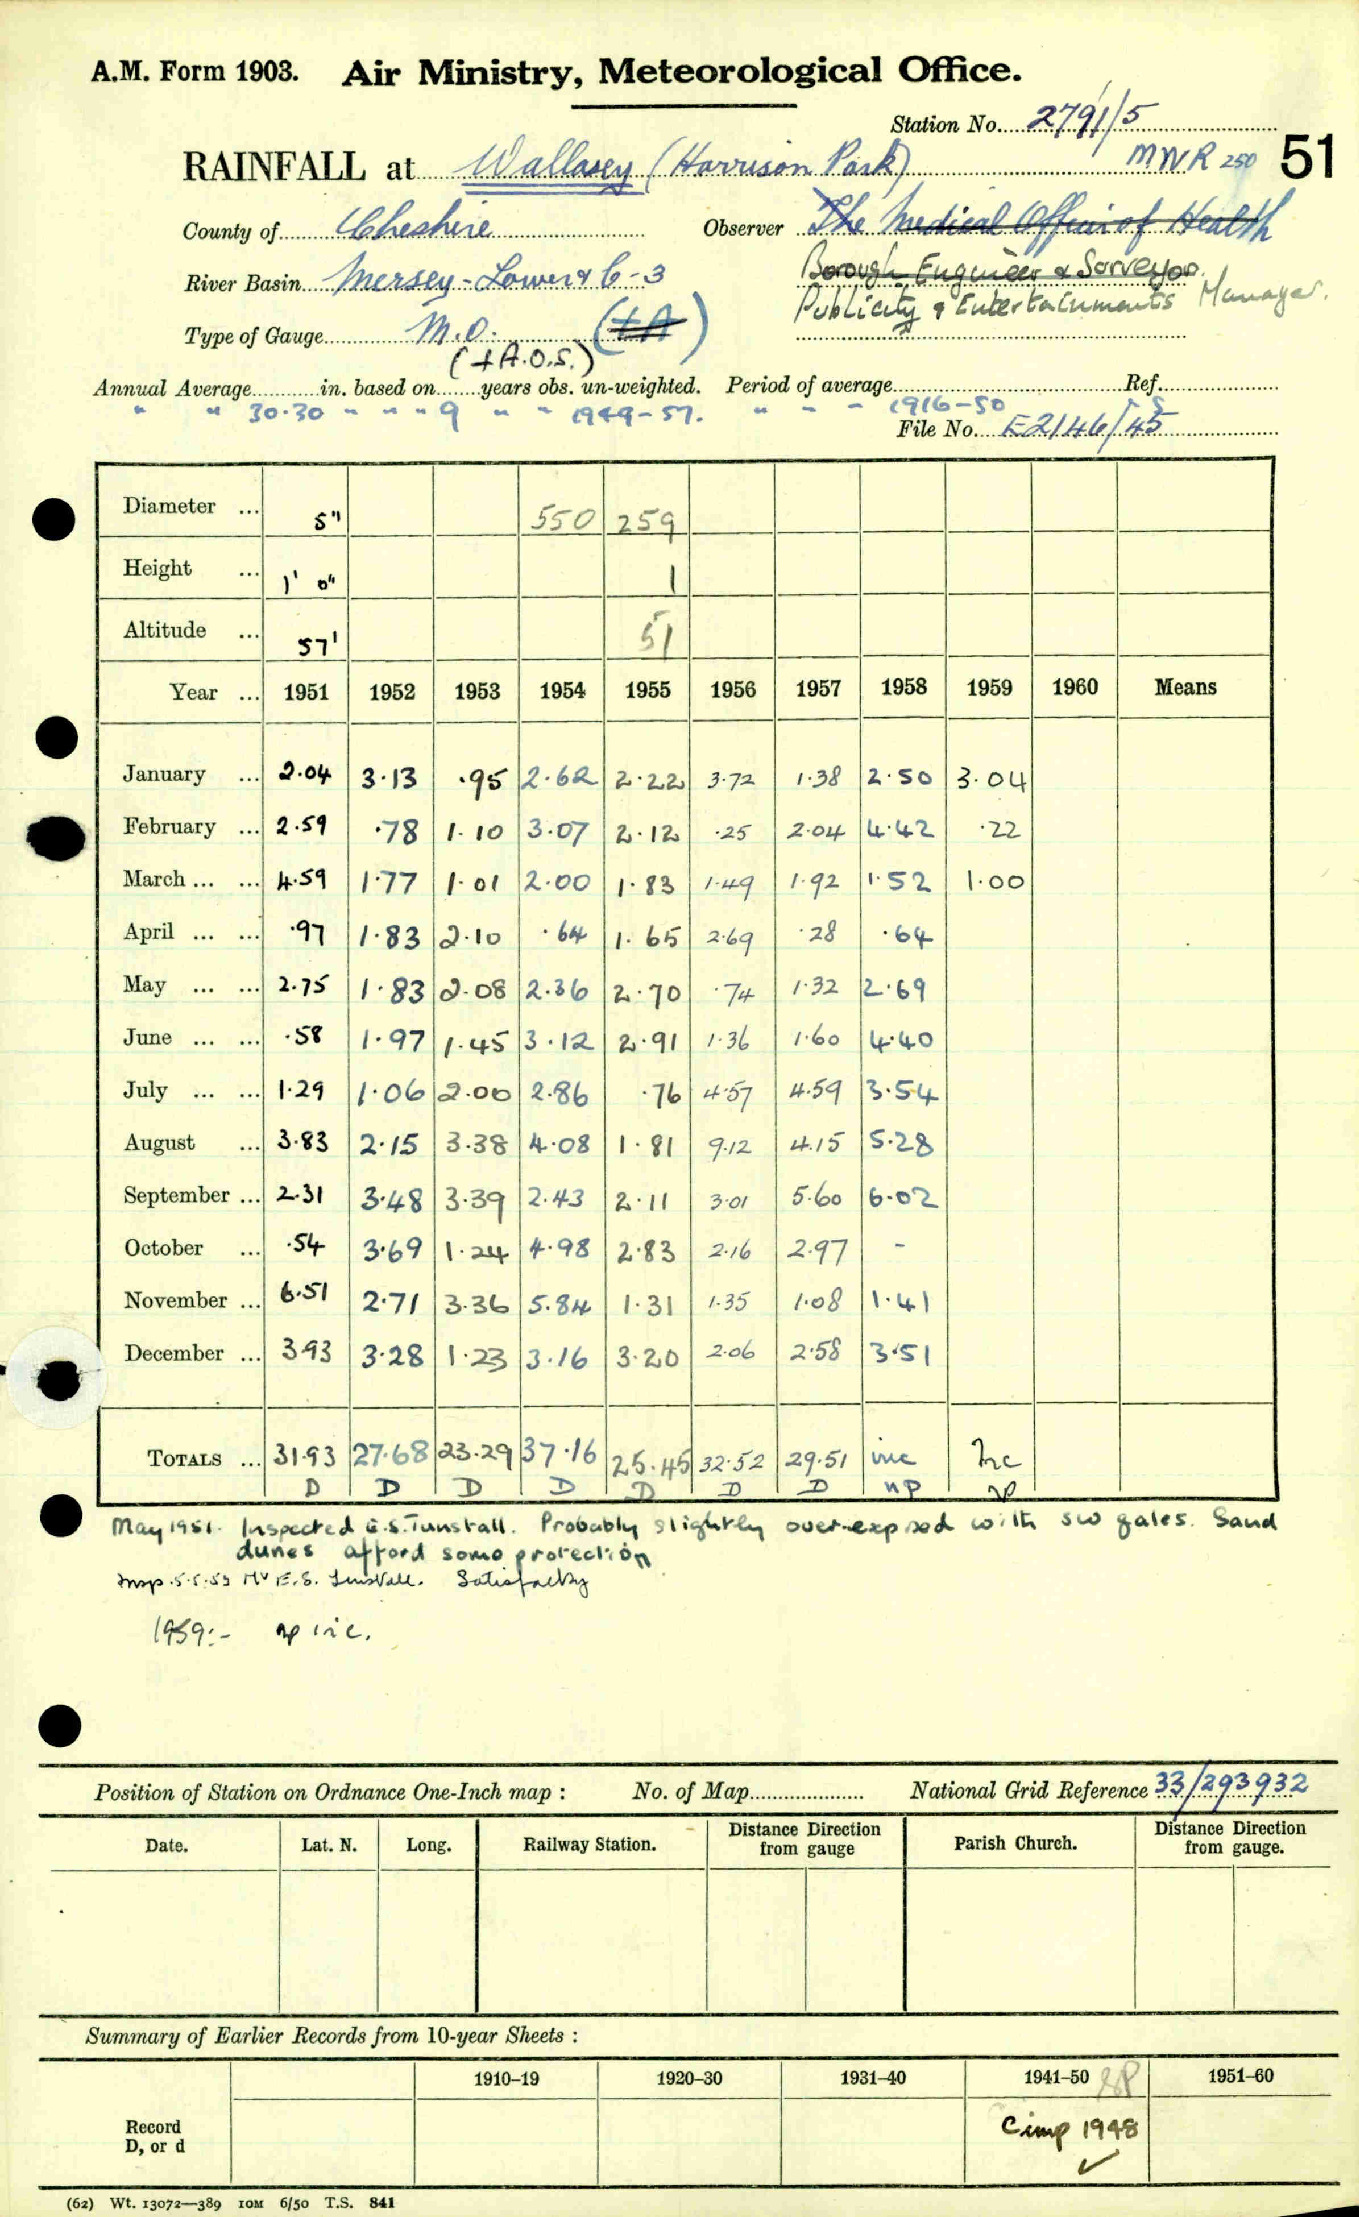 A.M. Form 1903. Air Ministry, Meteorological Office.
Station No. 2791/5
MWR 250 51
RAINFALL at Wallasey (Harrison Park)
County of Cheshire Observer The Medical Officer of Health
Borough Engineer & Surveyor.
River Basin Mersey-Lower & C-3
Publicity & Entertainments Manager.
Type of Gauge M.O. (+A)
(+A.O.S.)
Annual Average in. based on years obs. un-weighted. Period of average Ref.
" " 30.30 " " " 9 " " 1949-57. " " " 1916-50
File No. E2146/45
Diameter ... 5" 550 259
Height ... 1' 0" 1
Altitude ... 57' 51
Year ... 1951 1952 1953 1954 1955 1956 1957 1958 1959 1960 Means
January ... 2.04 3.13 .95 2.62 2.22 3.72 1.38 2.50 3.04
February ... 2.59 .78 1.10 3.07 2.12 .25 2.04 4.42 .22
March ... ... 4.59 1.77 1.01 2.00 1.83 1.49 1.92 1.52 1.00
April ... ... .97 1.83 2.10 .64 1.65 2.69 .28 .64
May ... ... 2.75 1.83 2.08 2.36 2.70 .74 1.32 2.69
June ... ... .58 1.97 1.45 3.12 2.91 1.36 1.60 4.40
July ... ... 1.29 1.06 2.00 2.86 .76 4.57 4.59 3.54
August ... 3.83 2.15 3.38 4.08 1.81 9.12 4.15 5.28
September ... 2.31 3.48 3.39 2.43 2.11 3.01 5.60 6.02
October ... .54 3.69 1.24 4.98 2.83 2.16 2.97 -
November ... 6.51 2.71 3.36 5.84 1.31 1.35 1.08 1.41
December ... 3.93 3.28 1.23 3.16 3.20 2.06 2.58 3.51
TOTALS ... 31.93 27.68 23.29 37.16 25.45 32.52 29.51 inc Inc
D D D D D D D np np
May 1951. Inspected E.S. Tunstall. Probably slightly over-exposed with SW gales. Sand
dunes afford some protection
Insp. 5.5.53 Mr E.S. Tunstall. Satisfactory
1959:- np inc.
Position of Station on Ordnance One-Inch map : No. of Map National Grid Reference 33/293932
Date. Lat. N. Long. Railway Station. Distance Direction from gauge Parish Church. Distance Direction from gauge.
Summary of Earlier Records from 10-year Sheets :
1910–19 1920–30 1931–40 1941–50 1951–60
Record
D, or d
Cimp 1948
(62) Wt. 13072—389 10M 6/50 T.S. 841